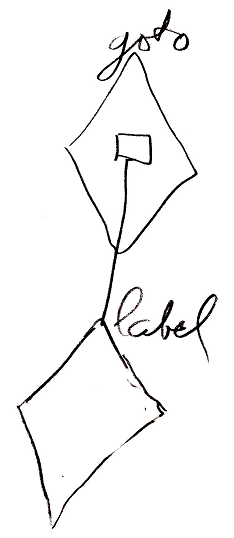 goto
label